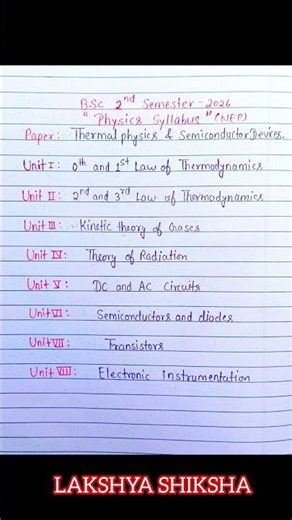 B.Sc 2nd Semester - 2026
"Physics Syllabus" (NEP)
Paper: Thermal physics & Semiconductor Devices.
Unit I: 0th and 1st Law of Thermodynamics
Unit II: 2nd and 3rd Law of Thermodynamics
Unit III: Kinetic theory of Gases
Unit IV: Theory of Radiation
Unit V: DC and AC Circuits
Unit VI: Semiconductors and diodes
Unit VII: Transistors
Unit VIII: Electronic instrumentation
LAKSHYA SHIKSHA